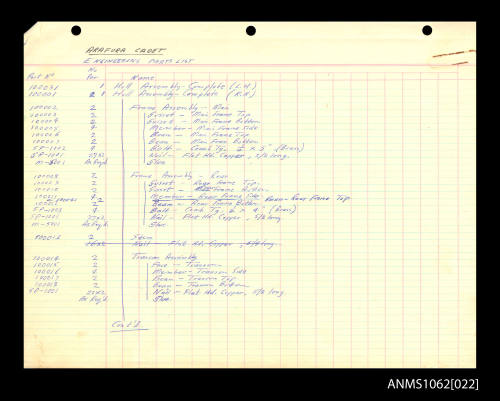 ARAFURA CADET
ENGINEERING PARTS LIST
Part No No Per Name
1 Hull Assembly - Complete (L.H.)
100001 2 1 Hull Assembly - Complete (R.H.)
100002 2 Frame Assembly - Main
100003 2 Gusset - Main Frame Top
100004 2 Gusset - Main Frame Bottom
100005 4 Member - Main Frame Side
100006 2 Beam - Main Frame Top
100007 2 Beam - Main Frame Bottom
SP-1002 4 Bolt - (Brass)
SP-1001 Nail - Flat Hd. Copper, 5/8 long.
M-5001 As Req'd Glue
100008 2 Frame Assembly - Rear
100009 2 Gusset - Rear Frame Top
100010 2 Gusset - Frame Bottom
100011 4 Member - Rear Frame Side Beam - Rear Frame Top
2 Beam - Rear Frame Bottom
4 Bolt - (Brass)
SP-1001 Nail - Flat Hd. Copper, 5/8 long
M-5001 As Req'd Glue
100013 2
Nail - Flat Hd. Copper, 5/8 long
100014 2 Transom Assembly
100015 2 Face - Transom
100016 4 Member - Transom Side
100017 2 Beam - Transom Top
100018 2 Beam - Transom Bottom
SP-1001 Nail - Flat Hd. Copper, 5/8 long.
As Req'd Glue
Cont'd.
ANMS1062[022]